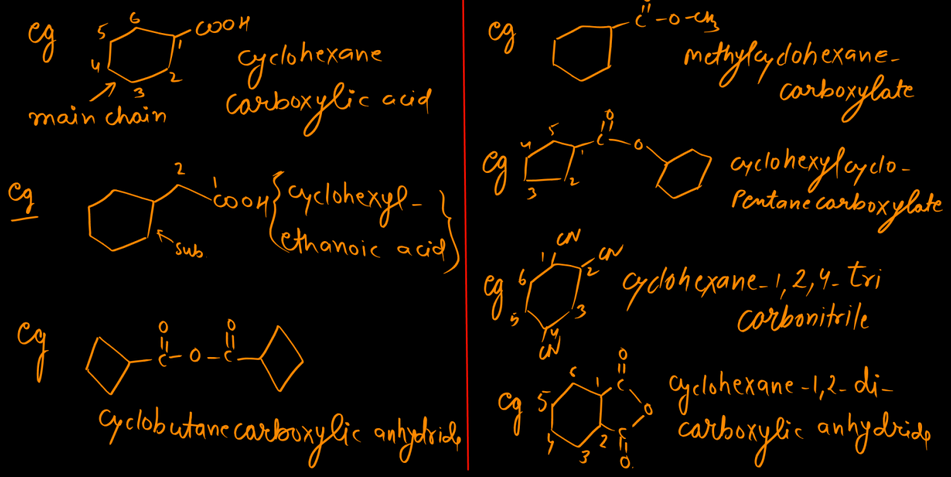 eg
6
5
COOH
1
4
2
3
main chain
cyclohexane
carboxylic acid
eg
2
1
COOH
sub
{cyclohexyl-
ethanoic acid}
eg
O O
C-O-C
cyclobutanecarboxylic anhydride
eg
O
C-O-CH3
methylcyclohexane-
carboxylate
eg
O
5
4
C
O
1
3 2
cyclohexylcyclo-
Pentanecarboxylate
eg
CN
1
CN
6
2
5
3
4
CN
cyclohexane-1,2,4-tri
carbonitrile
eg
O
6
1
C
5
O
4
C
3 2
O
cyclohexane-1,2-di-
carboxylic anhydride